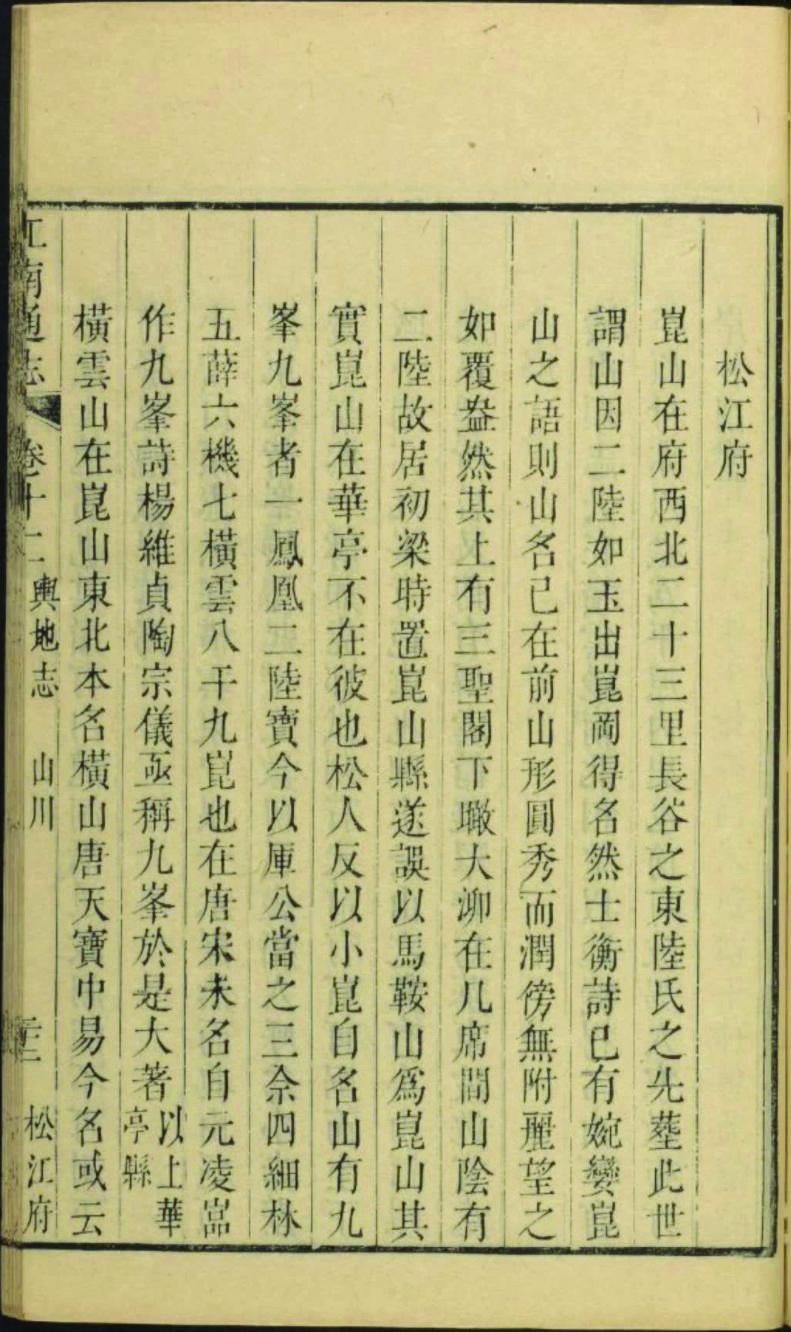 松江府
崑山在府西北二十三里長谷之東陸氏之先塟此世
謂山因二陸如玉出崑岡得名然士衡詩已有婉孌崑
山之語則山名已在前山形圓秀而潤傍無附麗望之
如覆盎然其上有三聖閣下瞰大泖在几席間山陰有
二陸故居初梁時置崑山縣遂誤以馬鞍山爲崑山其
實崑山在華亭不在彼也松人反以小崑自名山有九
峯九峯者一鳳凰二陸寶今以厙公當之三佘四細林
五薛六機七橫雲八干九崑也在唐宋未名自元凌嵓
作九峯詩楊維貞陶宗儀亟稱九峯於是大著以上華
亭縣
橫雲山在崑山東北本名橫山唐天寶中易今名或云
江南通志 卷十二 輿地志 山川 松江府